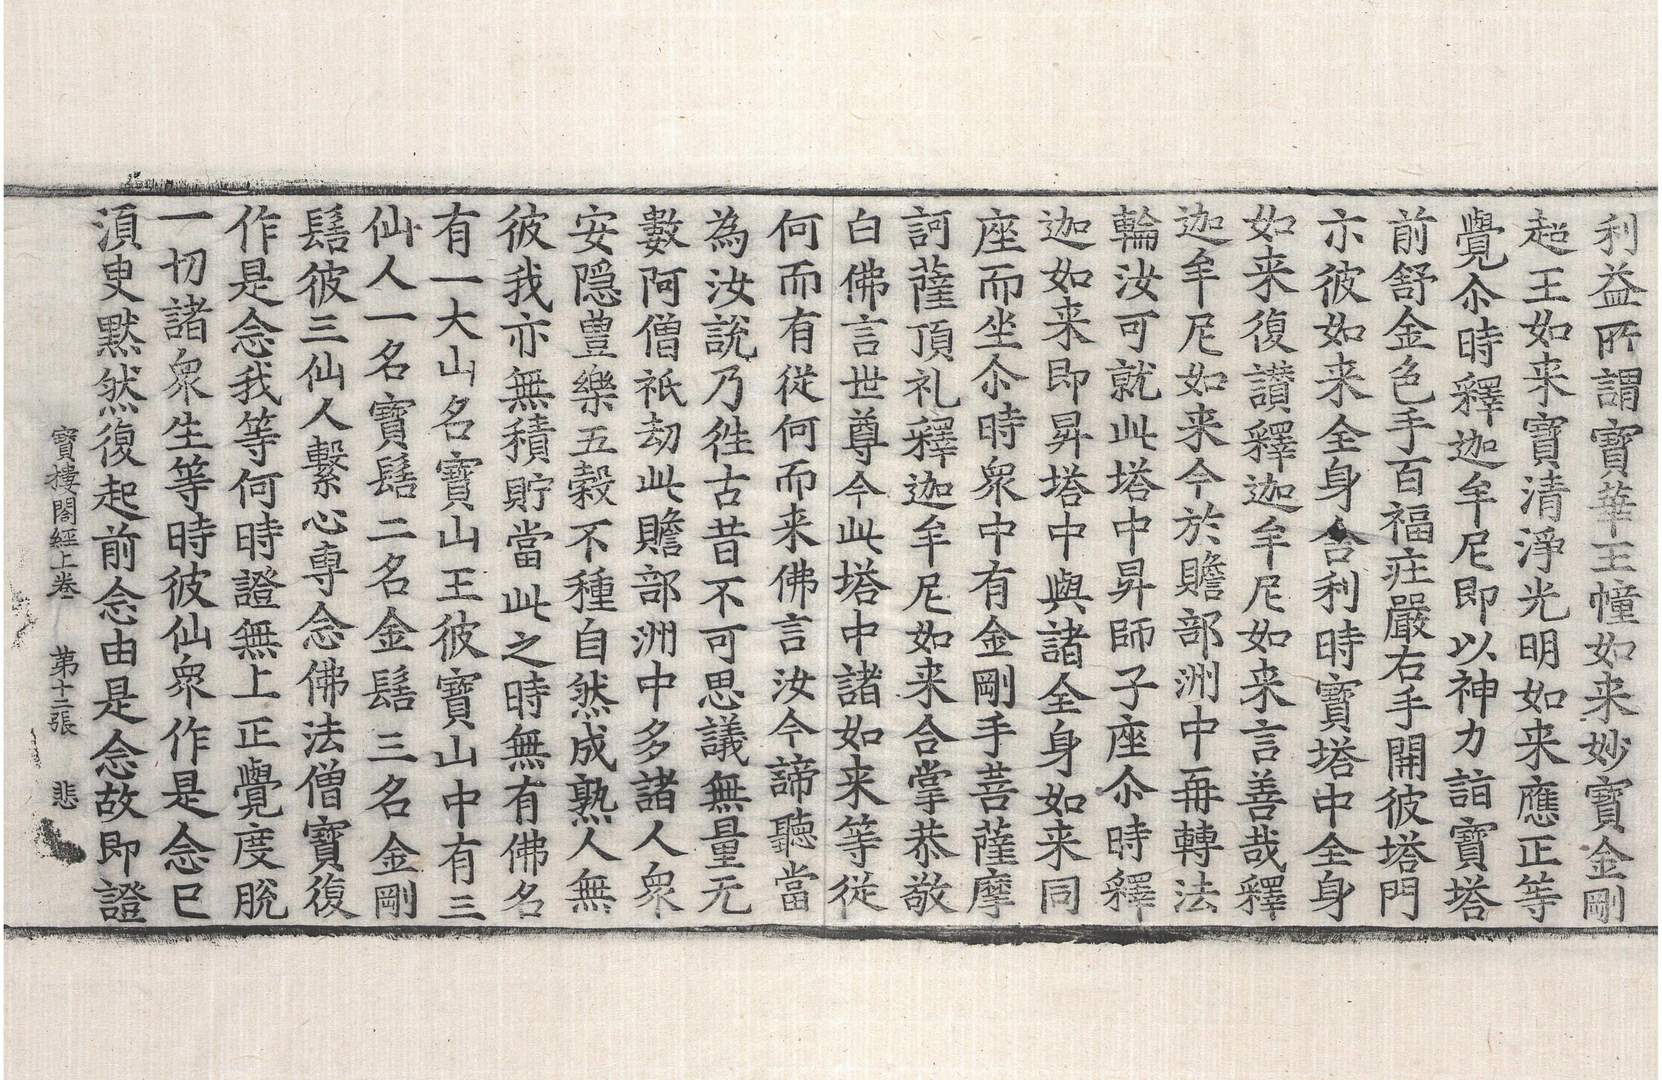 利益所謂寶華王幢如来妙寶金剛
超王如来寶清淨光明如来應正等
覺尒時釋迦牟尼即以神力詣寶塔
前舒金色手百福莊嚴右手開彼塔門
示彼如来全身舍利時寶塔中全身
如来復讃釋迦牟尼如来言善哉釋
迦牟尼如来今於贍部洲中再轉法
輪汝可就此塔中昇師子座尒時釋
迦如来即昇塔中與諸全身如来同
座而坐尒時衆中有金剛手菩薩摩
訶薩頂礼釋迦牟尼如来合掌恭敬
白佛言世尊今此塔中諸如来等従
何而有従何而来佛言汝今諦聽當
為汝說乃徃古昔不可思議無量无
數阿僧祇劫此贍部洲中多諸人衆
安隠豊樂五穀不種自然成熟人無
彼我亦無積貯當此之時無有佛名
有一大山名寶山王彼寶山中有三
仙人一名寶髻二名金髻三名金剛
髻彼三仙人繫心専念佛法僧寶復
作是念我等何時證無上正覺度脫
一切諸衆生等時彼仙衆作是念已
湏臾黙然復起前念由是念故即證
寶樓閣經上卷 苐十二張 悲